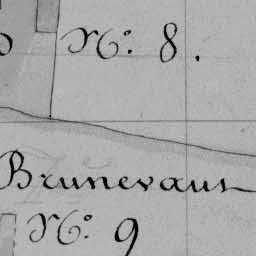 N.o 8.
Brunevaut
N.o 9